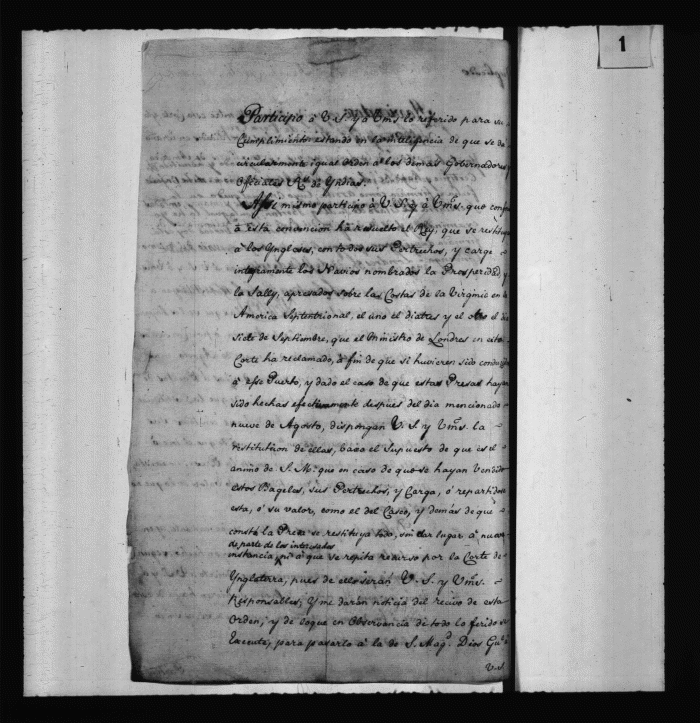 1
Participo â V.S. y â Vms. lo referido para su
Cumplimiento: estando en la intelifencia de que se da
circularmente igual orden â los demas Gobernadores y
Officiales Rs. de Yndias.
Assi mismo participo â V.S. y â Vms. que conf
â Esta convencion hà resuelto el Rey, que se restituy
â los Yngleses, con todos sus Pertrechos, y carga
integramente los Navios nombrados la Prosperidad, y
la Sally, apresados sobre las Costas de la Virginie en la
America Septentrional, el uno el dia tres y el otro el di
siete de Septiembre, que el Ministro de Londres en esta
Corte ha reclamado, â fin de que si huvieren sido conduci
â esse Puerto, y dado el caso de que estas Presas hayan
sido hechas efectivamente despues del dia mencionado
nueve de Agosto, dispongan V.S. y Vms. la
restitution de ellas, baxo el Supuesto de que es el
animo de S.M. que en caso de que se hayan Vendido
estos Bageles, sus Pertrechos, y Carga, ô repartidose
esta, ô su valor, como el del Casco, y demás de que
consté la Presa se restituya todo, sin dar lugar â nueva
de parte de los interesados
instancia, ni â que se repita recurso por la Corte de
Ynglaterra, pues de ello seràn V.S. y Vms.
Responsables; Y me daràn noticia del recivo de esta
Orden, y de loque en Observancia de todo lo ferido se
Execute, para pasarlo â la de S. Magd. Dios Gue. â
V.S.